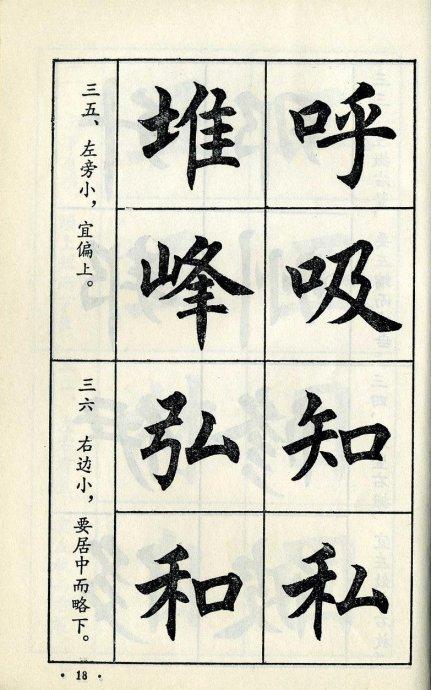 呼
吸
堆
峰
三五、左旁小，宜偏上。
知
私
弘
和
三六 右边小，要居中而略下。
· 18 ·